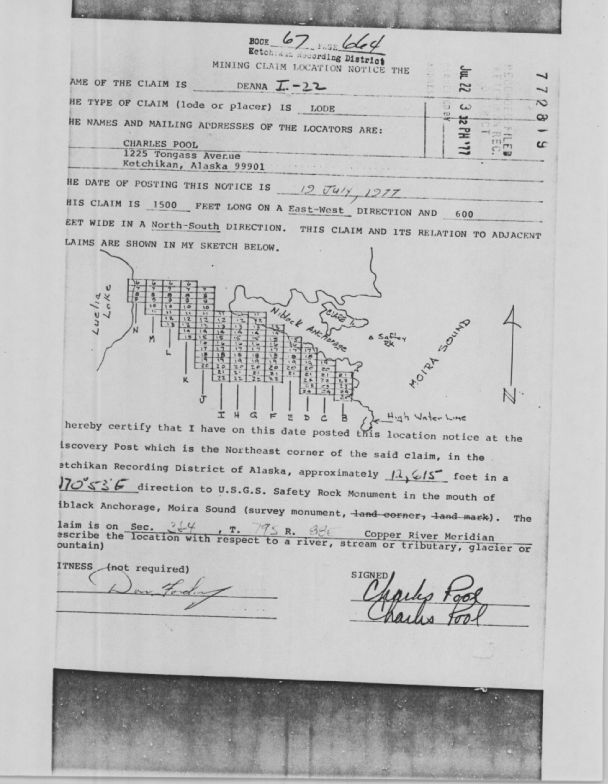 BOOK 67 PAGE 664
Ketchikan Recording District
MINING CLAIM LOCATION NOTICE THE
AME OF THE CLAIM IS DEANA I-22
HE TYPE OF CLAIM (lode or placer) IS LODE
HE NAMES AND MAILING ADDRESSES OF THE LOCATORS ARE:
CHARLES POOL
1225 Tongass Avenue
Ketchikan, Alaska 99901
JUL 22 3 32 PH '77
772819
HE DATE OF POSTING THIS NOTICE IS 12 July, 1977
HIS CLAIM IS 1500 FEET LONG ON A East-West DIRECTION AND 600
EET WIDE IN A North-South DIRECTION. THIS CLAIM AND ITS RELATION TO ADJACENT
LAIMS ARE SHOWN IN MY SKETCH BELOW.
Luelia Lake
Niblack Anchorage
Safety Rk
MOIRA SOUND
N
N M L K J I H G F E D C B
High Water Line
hereby certify that I have on this date posted this location notice at the
iscovery Post which is the Northeast corner of the said claim, in the
etchikan Recording District of Alaska, approximately 12,615 feet in a
direction to U.S.G.S. Safety Rock Monument in the mouth of
iblack Anchorage, Moira Sound (survey monument, land corner, land mark). The
laim is on Sec. , T. 79S R. 88E Copper River Meridian
escribe the location with respect to a river, stream or tributary, glacier or
ountain)
ITNESS (not required)
SIGNED
Charles Pool
Charles Pool